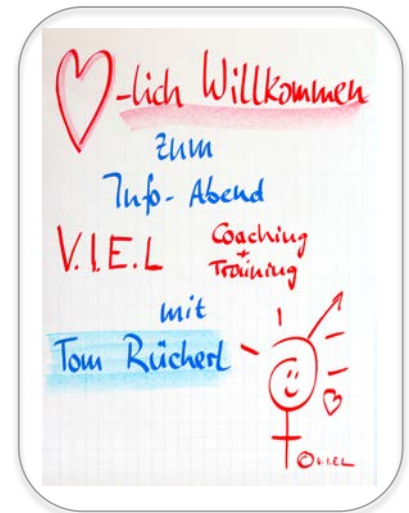 -lich Willkommen
zum
Info-Abend
V.I.E.L Coaching
+
Training
mit
Tom Rückerl
© V.I.E.L